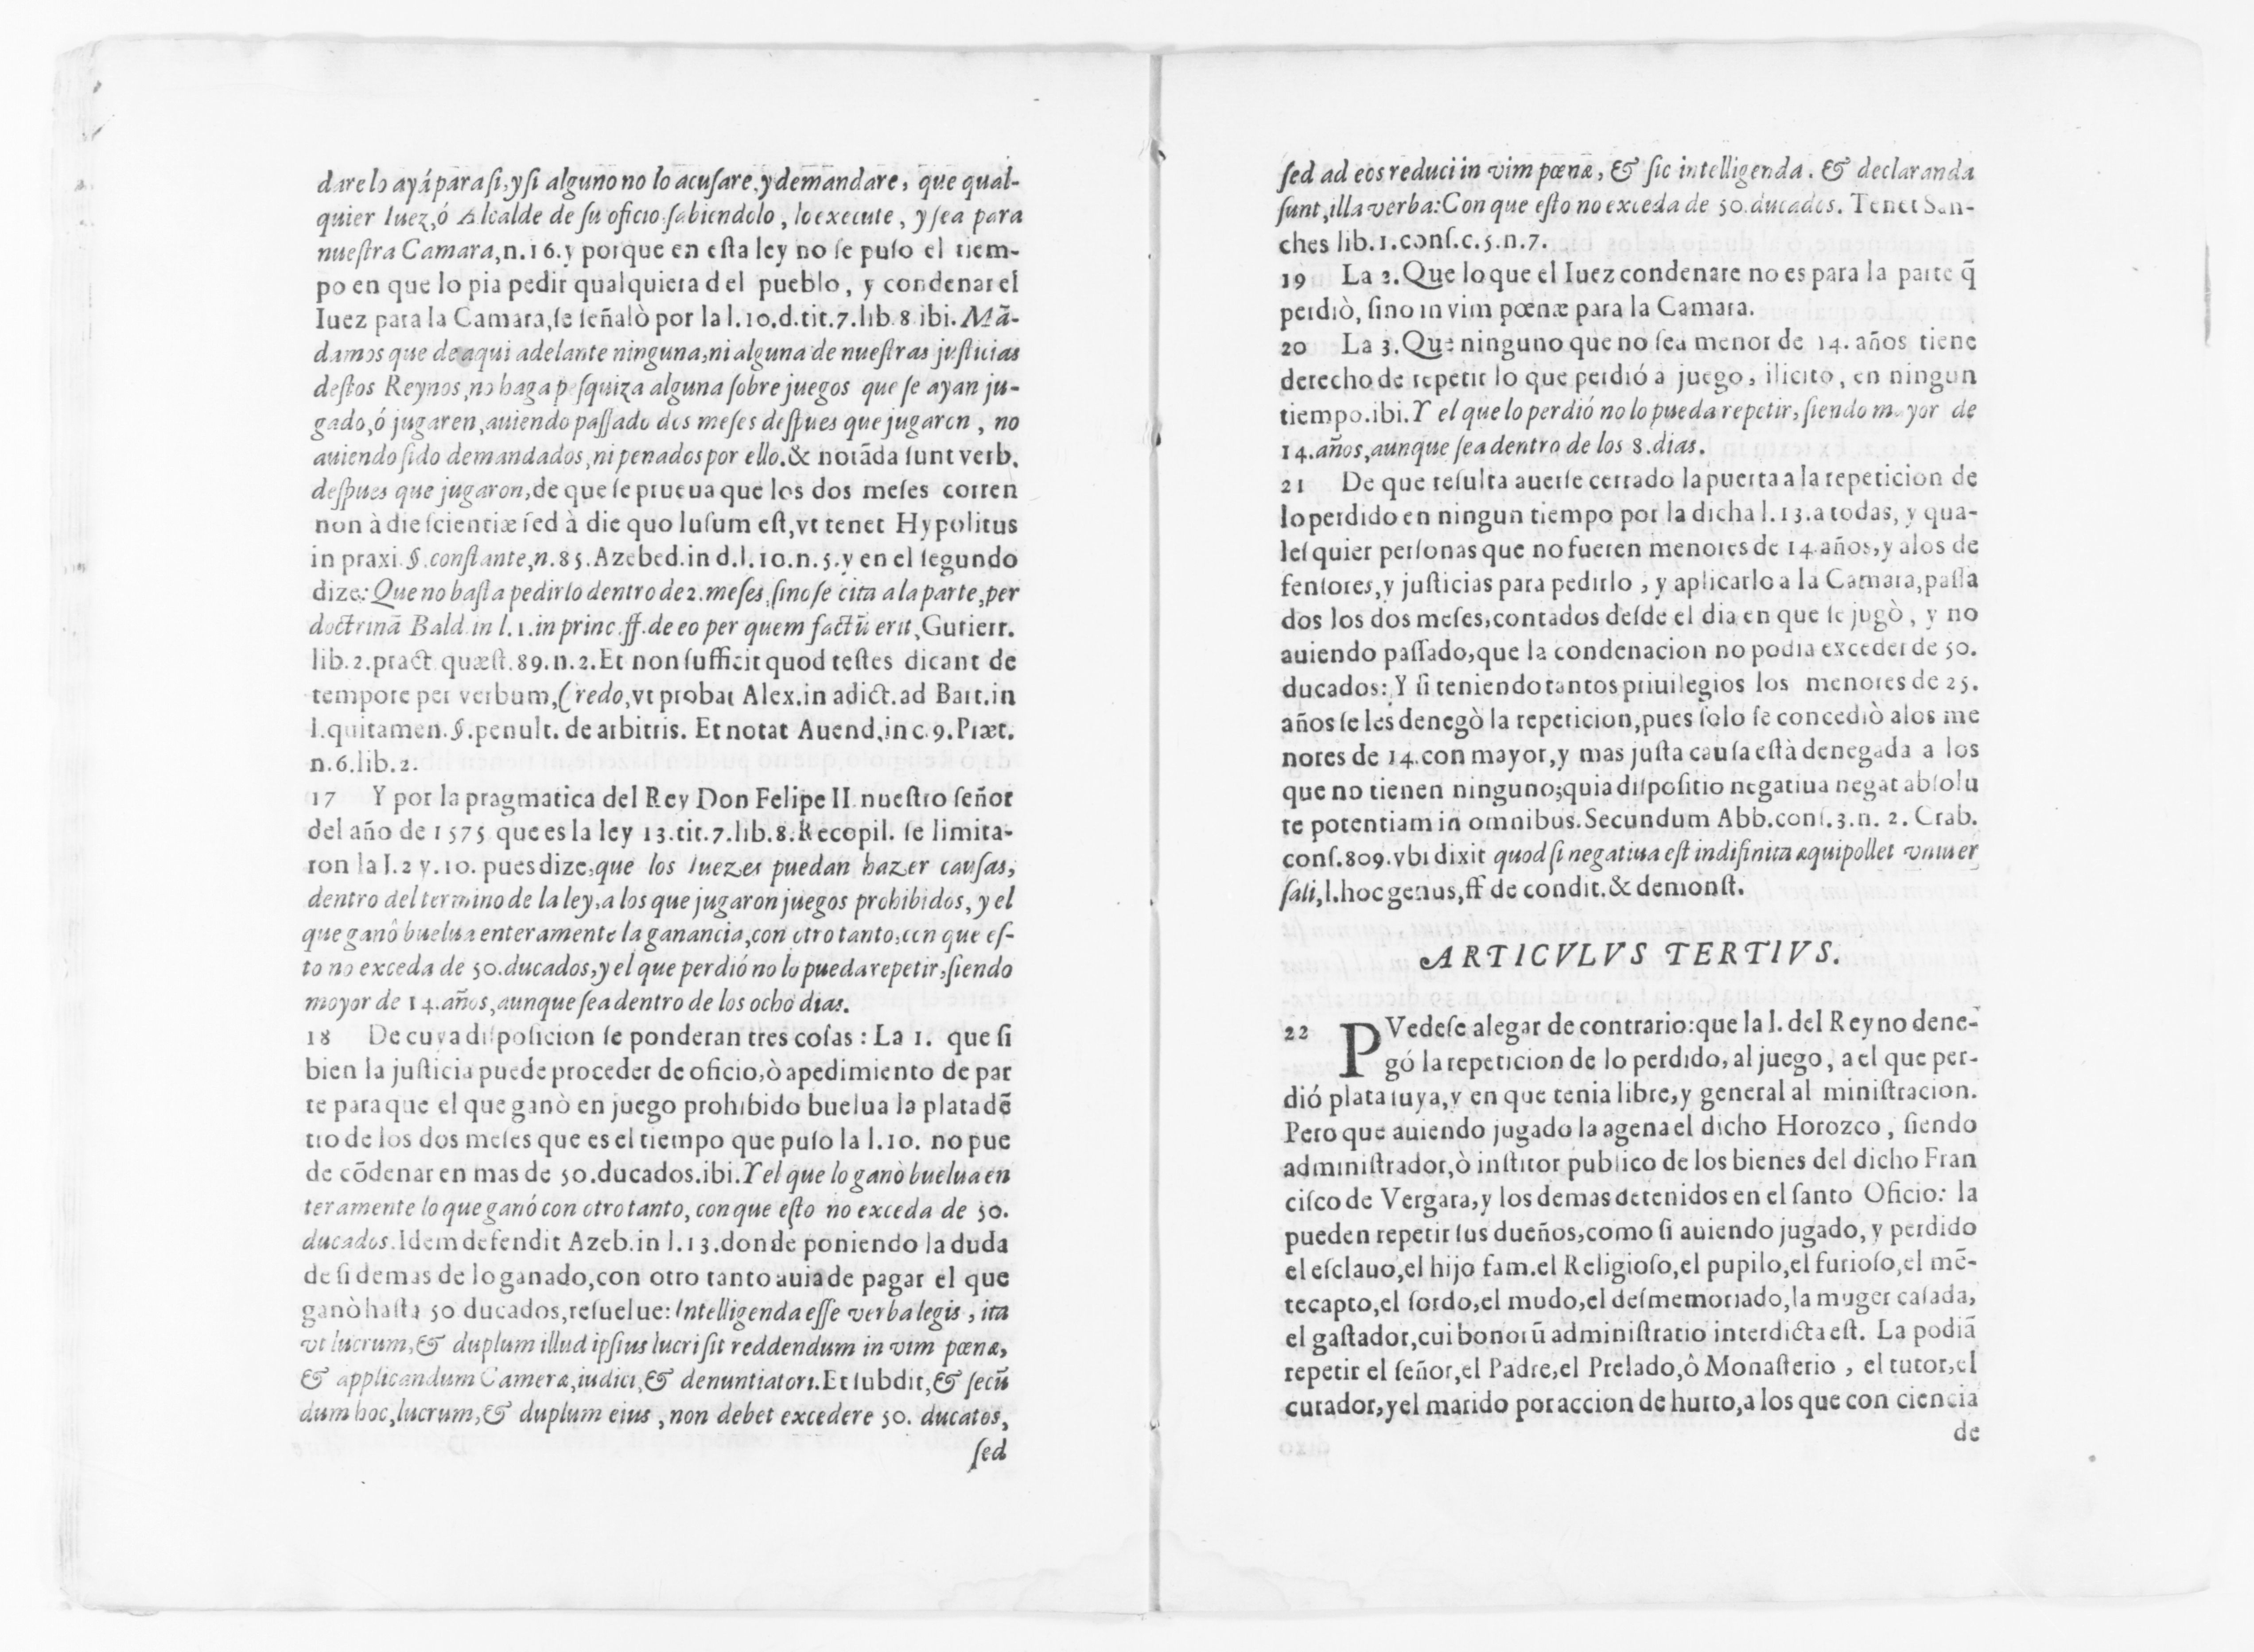 dare lo ayá para si, y si alguno no lo acusare, y demandare, que qual-
quier Iuez, ó Alcalde de su oficio sabiendolo, lo execute, y sea para
nuestra Camara, n.16. y porque en esta ley no se puso el tiem-
po en que lo pia pedir qualquiera del pueblo, y condenar el
Iuez para la Camara, se señalò por la l.10.d.tit.7.lib.8 ibi. Mã-
damos que de aqui adelante ninguna, ni alguna de nuestras justicias
destos Reynos, no haga pesquiza alguna sobre juegos que se ayan ju-
gado, ó jugaren, auiendo passado dos meses despues que jugaren, no
auiendo sido demandados, ni penados por ello. & notãda sunt verb.
despues que jugaron, de que se prueua que los dos meses corren
non à die scientiæ sed à die quo lusum est, vt tenet Hypolitus
in praxi. §. constante, n.85. Azebed. in d.l.10.n.5. y en el segundo
dize: Que no basta pedirlo dentro de 2. meses, sino se cita a la parte, per
doctrinã Bald. in l.1. in princ. ff. de eo per quem factũ erit, Gutierr.
lib.2.pract quæst.89.n.2. Et non sufficit quod testes dicant de
tempore per verbum, Credo, vt probat Alex. in adict. ad Bart. in
l. quitamen. §. penult. de arbitris. Et notat Auend. in c.9. Præt.
n.6.lib.2.
17 Y por la pragmatica del Rey Don Felipe II. nuestro señor
del año de 1575 que es la ley 13.tit.7.lib.8. Recopil. se limita-
ron la l.2 y.10. pues dize, que los Iuezes puedan hazer causas,
dentro del termino de la ley, a los que jugaron juegos prohibidos, y el
que ganò buelua enteramente la ganancia, con otro tanto, con que es-
to no exceda de 50. ducados, y el que perdió no lo pueda repetir, siendo
moyor de 14. años, aunque sea dentro de los ocho dias.
18 De cuya disposicion se ponderan tres cosas: La 1. que si
bien la justicia puede proceder de oficio, ò apedimiento de par
te para que el que ganò en juego prohibido buelua la plata dẽ
tro de los dos meses que es el tiempo que puso la l.10. no pue
de cõdenar en mas de 50. ducados. ibi. Y el que lo ganò buelua en
teramente lo que ganó con otro tanto, con que esto no exceda de 50.
ducados. Idem defendit Azeb. in l.13. donde poniendo la duda
de si demas de lo ganado, con otro tanto auia de pagar el que
ganò hasta 50 ducados, resuelue: Intelligenda esse verba legis, ita
vt lucrum, & duplum illud ipsius lucri sit reddendum in vim pœnæ,
& applicandum Cameræ, iudici, & denuntiatori. Et subdit, & secũ
dum hoc, lucrum, & duplum eius, non debet excedere 50. ducatos,
sed
sed ad eos reduci in vim pœnæ, & sic intelligenda. & declaranda
sunt, illa verba: Con que esto no exceda de 50. ducados. Tenet San-
ches lib.1.cons.c.5.n.7.
19 La 2. Que lo que el Iuez condenare no es para la parte q̃
perdiò, sino in vim pœnæ para la Camara.
20 La 3. Que ninguno que no sea menor de 14. años tiene
derecho de repetir lo que perdió a juego, ilicito, en ningun
tiempo. ibi. Y el que lo perdió no lo pueda repetir, siendo mayor de
14. años, aunque sea dentro de los 8. dias.
21 De que resulta auerse cerrado la puerta a la repeticion de
lo perdido en ningun tiempo por la dicha l.13. a todas, y qua-
lesquier personas que no fueren menores de 14. años, y a los de
fensores, y justicias para pedirlo, y aplicarlo a la Camara, passa
dos los dos meses, contados desde el dia en que se jugò, y no
auiendo passado, que la condenacion no podia exceder de 50.
ducados: Y si teniendo tantos priuilegios los menores de 25.
años se les denegò la repeticion, pues solo se concediò alos me
nores de 14. con mayor, y mas justa causa està denegada a los
que no tienen ninguno; quia dispositio negatiua negat absolu
te potentiam in omnibus. Secundum Abb. cons.3.n.2. Crab.
cons.809. vbi dixit quod si negatiua est indifinita æquipollet vniuer
sali, l. hoc genus, ff de condit. & demonst.
ARTICVLVS TERTIVS.
22 PVedese alegar de contrario: que la l. del Reyno dene-
gó la repeticion de lo perdido, al juego, a el que per-
dió plata suya, y en que tenia libre, y general al ministracion.
Pero que auiendo jugado la agena el dicho Horozco, siendo
administrador, ò institor publico de los bienes del dicho Fran
cisco de Vergara, y los demas detenidos en el santo Oficio: la
pueden repetir sus dueños, como si auiendo jugado, y perdido
el esclauo, el hijo fam. el Religioso, el pupilo, el furioso, el mẽ-
tecapto, el sordo, el mudo, el desmemoriado, la muger casada,
el gastador, cui bonorũ administratio interdicta est. La podiã
repetir el señor, el Padre, el Prelado, ò Monasterio, el tutor, el
curador, y el marido por accion de hurto, a los que con ciencia
de